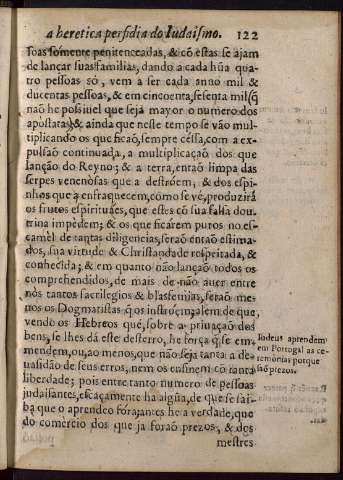 a heretica perfidia do Iudaismo. 122
soas somente penitenceadas, & cõ estas se ajam
de lançar suas familias, dando a cada hũa qua
tro pessoas só, vem a ser cada anno mil &
ducentas pessoas, & em cincoenta, sesenta mil, q̃
naõ he possiuel que seja mayor o numero dos
apostatas; & ainda que nesse tempo se vão mul-
tiplicando os que ficaõ, sempre cessa, com a ex-
pulsaõ continuada, a multiplicaçaõ dos que
lanção do Reyno; & a terra, entaõ limpa das
serpes venenosas que a destroem, & dos espi-
nhos que a enfraquecem, como se vè, produzirá
os frutos espirituáes, que estes cõ sua falsa dou-
trina impèdem; & os que ficárem puros no es-
camèl de tantas diligencias, seraõ entaõ estima-
dos, sua virtude & Christandade respeitada, &
conhecida; & em quanto não lançaõ todos os
comprehendidos, de mais de não auer entre
nòs tantos sacrilegios & blasfemias, seraõ me-
nos os Dogmatistas q̃ os instroem; alem de que,
vendo os Hebreos que, sobre a priuação dos
bens, se lhes dá este desterro, he força q̃ se em-
mendem, ou, ao menos, que não seja tanta a de-
uasidaõ de seus erros, nem os ensinem cõ tanta
liberdade; pois entre tanto numero de pessoas
judaisantes, escaçamente ha algũa, de que se sai-
ba que o aprendeo fora, antes he a verdade, que
do comèrcio dos que ja foraõ prezos, & dos
mestres
Iodeus aprendem
em Portogal as ce-
remonias porque
saõ prezos.